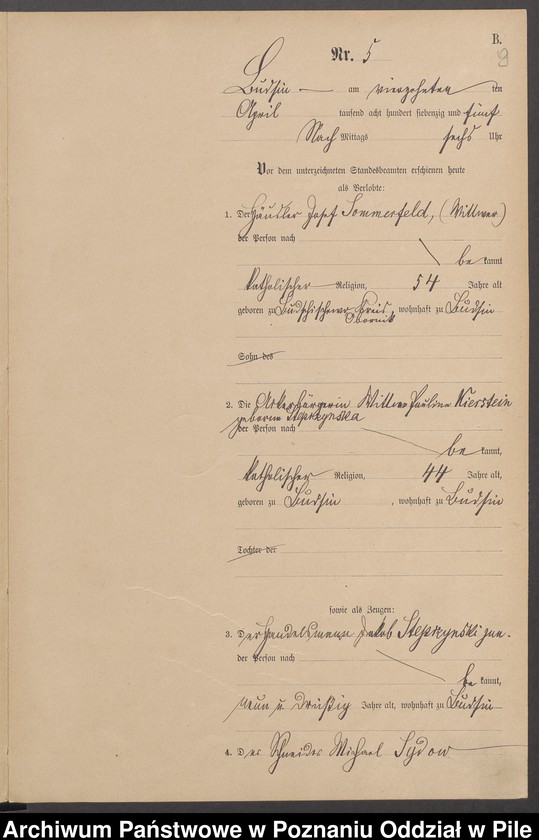 B.
9
Nr. 5
Budsin am vierzehnten ten
April tausend acht hundert siebenzig und fünf
Nach Mittags sechs Uhr
Vor dem unterzeichneten Standesbeamten erschienen heute
als Verlobte:
1. Der Häusler Josef Sommerfeld, (Wittwer)
der Person nach
be kannt
katholischer Religion, 54 Jahre alt
geboren zu Kreis Obornik, wohnhaft zu Budsin
Sohn des
2. Die Ackerbürgerin Wittwe Pauline Kierstein
geborne Slepszynska
der Person nach
be kannt,
katholischer Religion, 44 Jahre alt,
geboren zu Budsin, wohnhaft zu Budsin
Tochter der
sowie als Zeugen:
3. Der Handelsmann Jakob Slepszynski jun.
der Person nach
be kannt,
neun u dreißig Jahre alt, wohnhaft zu Budsin
4. Der Schneider Michael Sydow
Archiwum Państwowe w Poznaniu Oddział w Pile